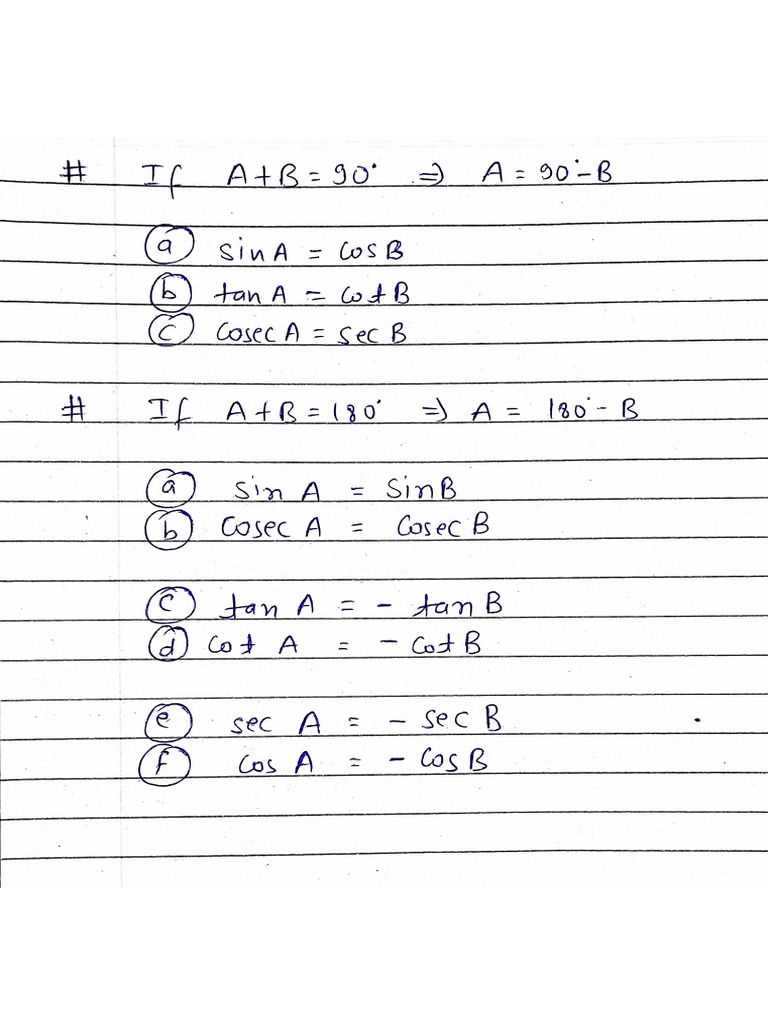 # If A+B = 90° ⇒ A = 90°-B
(a) sin A = cos B
(b) tan A = cot B
(c) cosec A = sec B
# If A+B = 180° ⇒ A = 180°- B
(a) sin A = sin B
(b) cosec A = cosec B
(c) tan A = - tan B
(d) cot A = - cot B
(e) sec A = - sec B
(f) cos A = - cos B